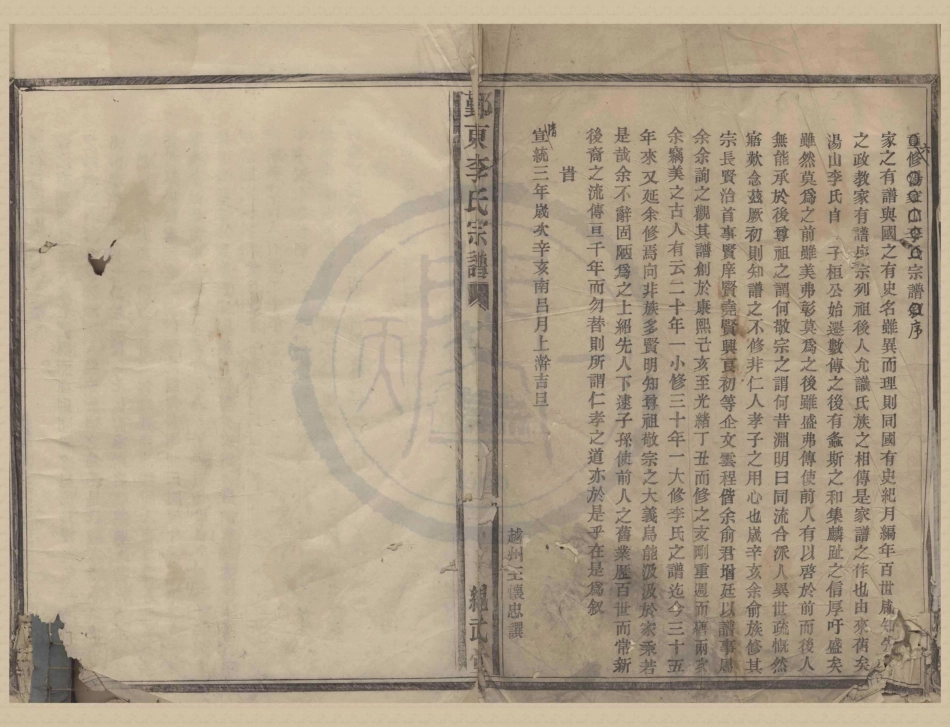 重修湯山李氏宗譜敘序
家之有譜與國之有史名雖異而理則同國有史紀月編年百世咸知
之政教家有譜序宗列祖後人允識氏族之相傳是家譜之作也由來尚矣
湯山李氏自 子桓公始遷數傳之後有螽斯之和集麟趾之信厚吁盛矣
雖然莫爲之前雖美弗彰莫爲之後雖盛弗傳使前人有以啓於前而後人
無能承於後尊祖之謂何敬宗之謂何昔淵明曰同流合派人異世疏慨然
寤歎念茲厥初則知譜之不修非仁人孝子之用心也歲辛亥余俞族修其
宗長賢治首事賢庠賢堯賢興賢初等企文雲程偕余俞君增廷以譜事
余余詢之觀其譜創於康熙己亥至光緒丁丑而修之支剛重週而
余竊美之古人有云二十年一小修三十年一大修李氏之譜迄今三十五
年來又延余修焉向非族多賢明知尊祖敬宗之大義烏能汲汲於家乘若
是哉余不辭固陋爲之上紹先人下逮子孫使前人之舊業歷百世而常新
後裔之流傳亘千年而勿替則所謂仁孝之道亦於是乎在是爲敘
旹
清
宣統三年歲次辛亥南呂月上澣吉旦
越州王懷忠譔
鄞東李氏宗譜
繩武堂